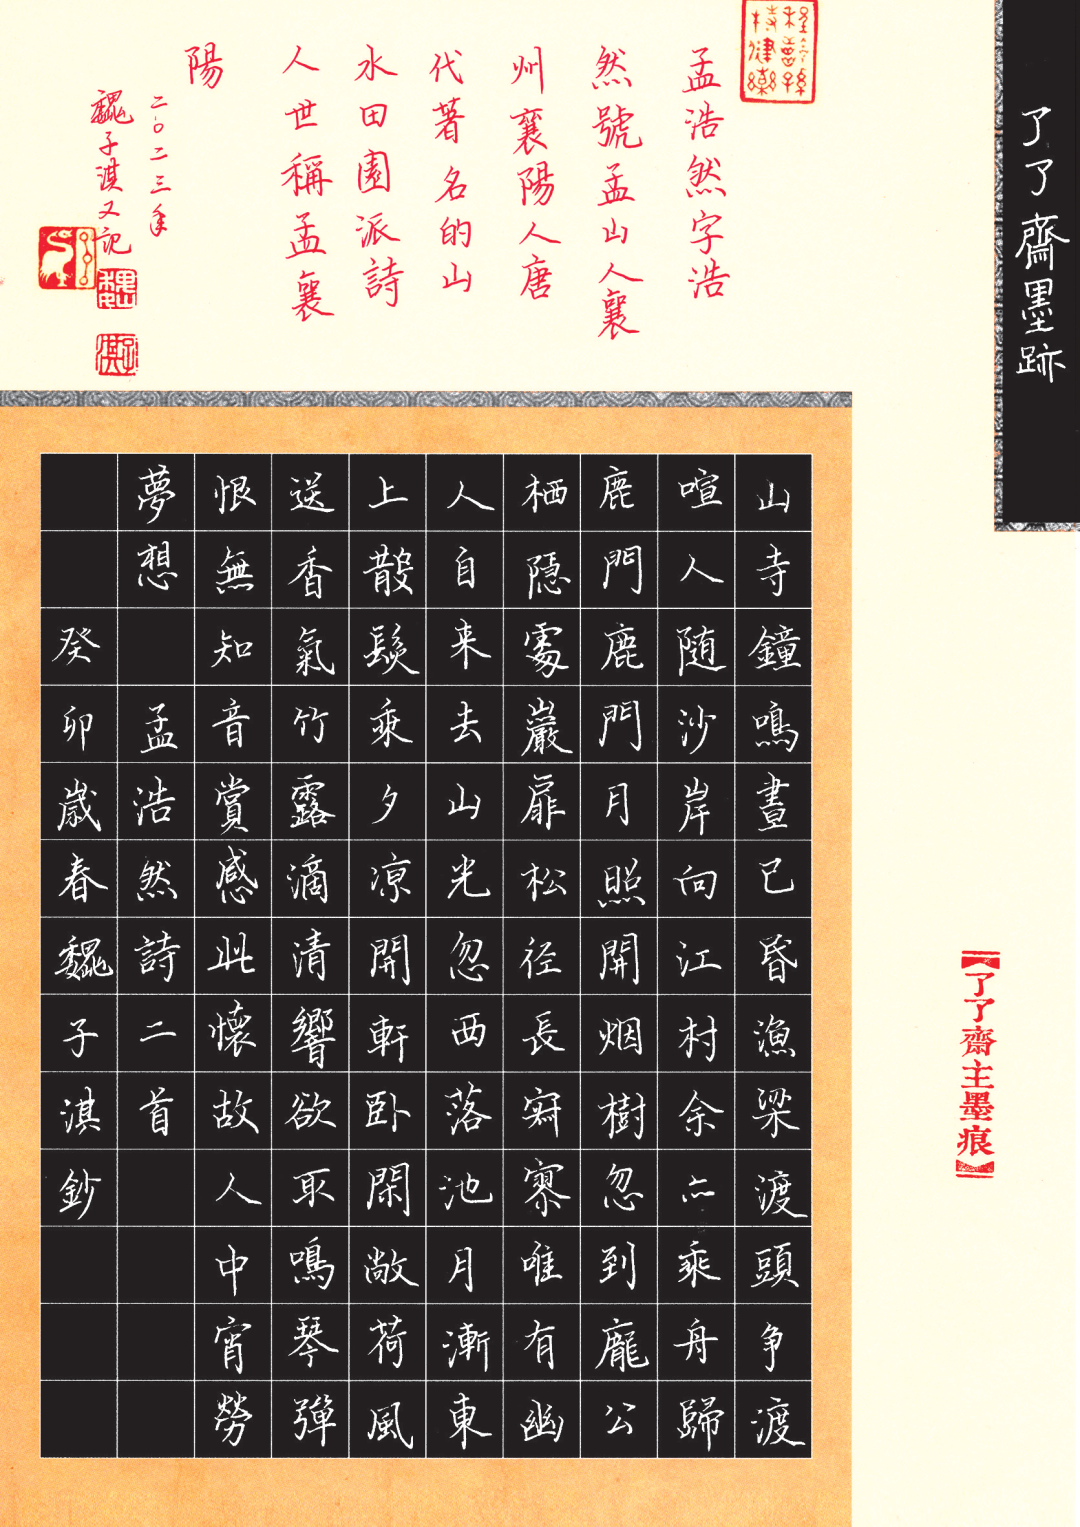 了了齋墨跡
孟浩然字浩
然號孟山人襄
州襄陽人唐
代著名的山
水田園派詩
人世稱孟襄
陽
二〇二三年
魏子淇又記
山寺鐘鳴晝已昏漁梁渡頭争渡
喧人随沙岸向江村余亦乘舟歸
鹿門鹿門月照開烟樹忽到龐公
栖隱處巖扉松径長寂寥唯有幽
人自来去山光忽西落池月漸東
上散髮乘夕凉開軒卧閑敞荷風
送香氣竹露滴清響欲取鳴琴彈
恨無知音賞感此懷故人中宵勞
夢想 孟浩然詩二首
癸卯歲春魏子淇鈔
【了了齋主墨痕】